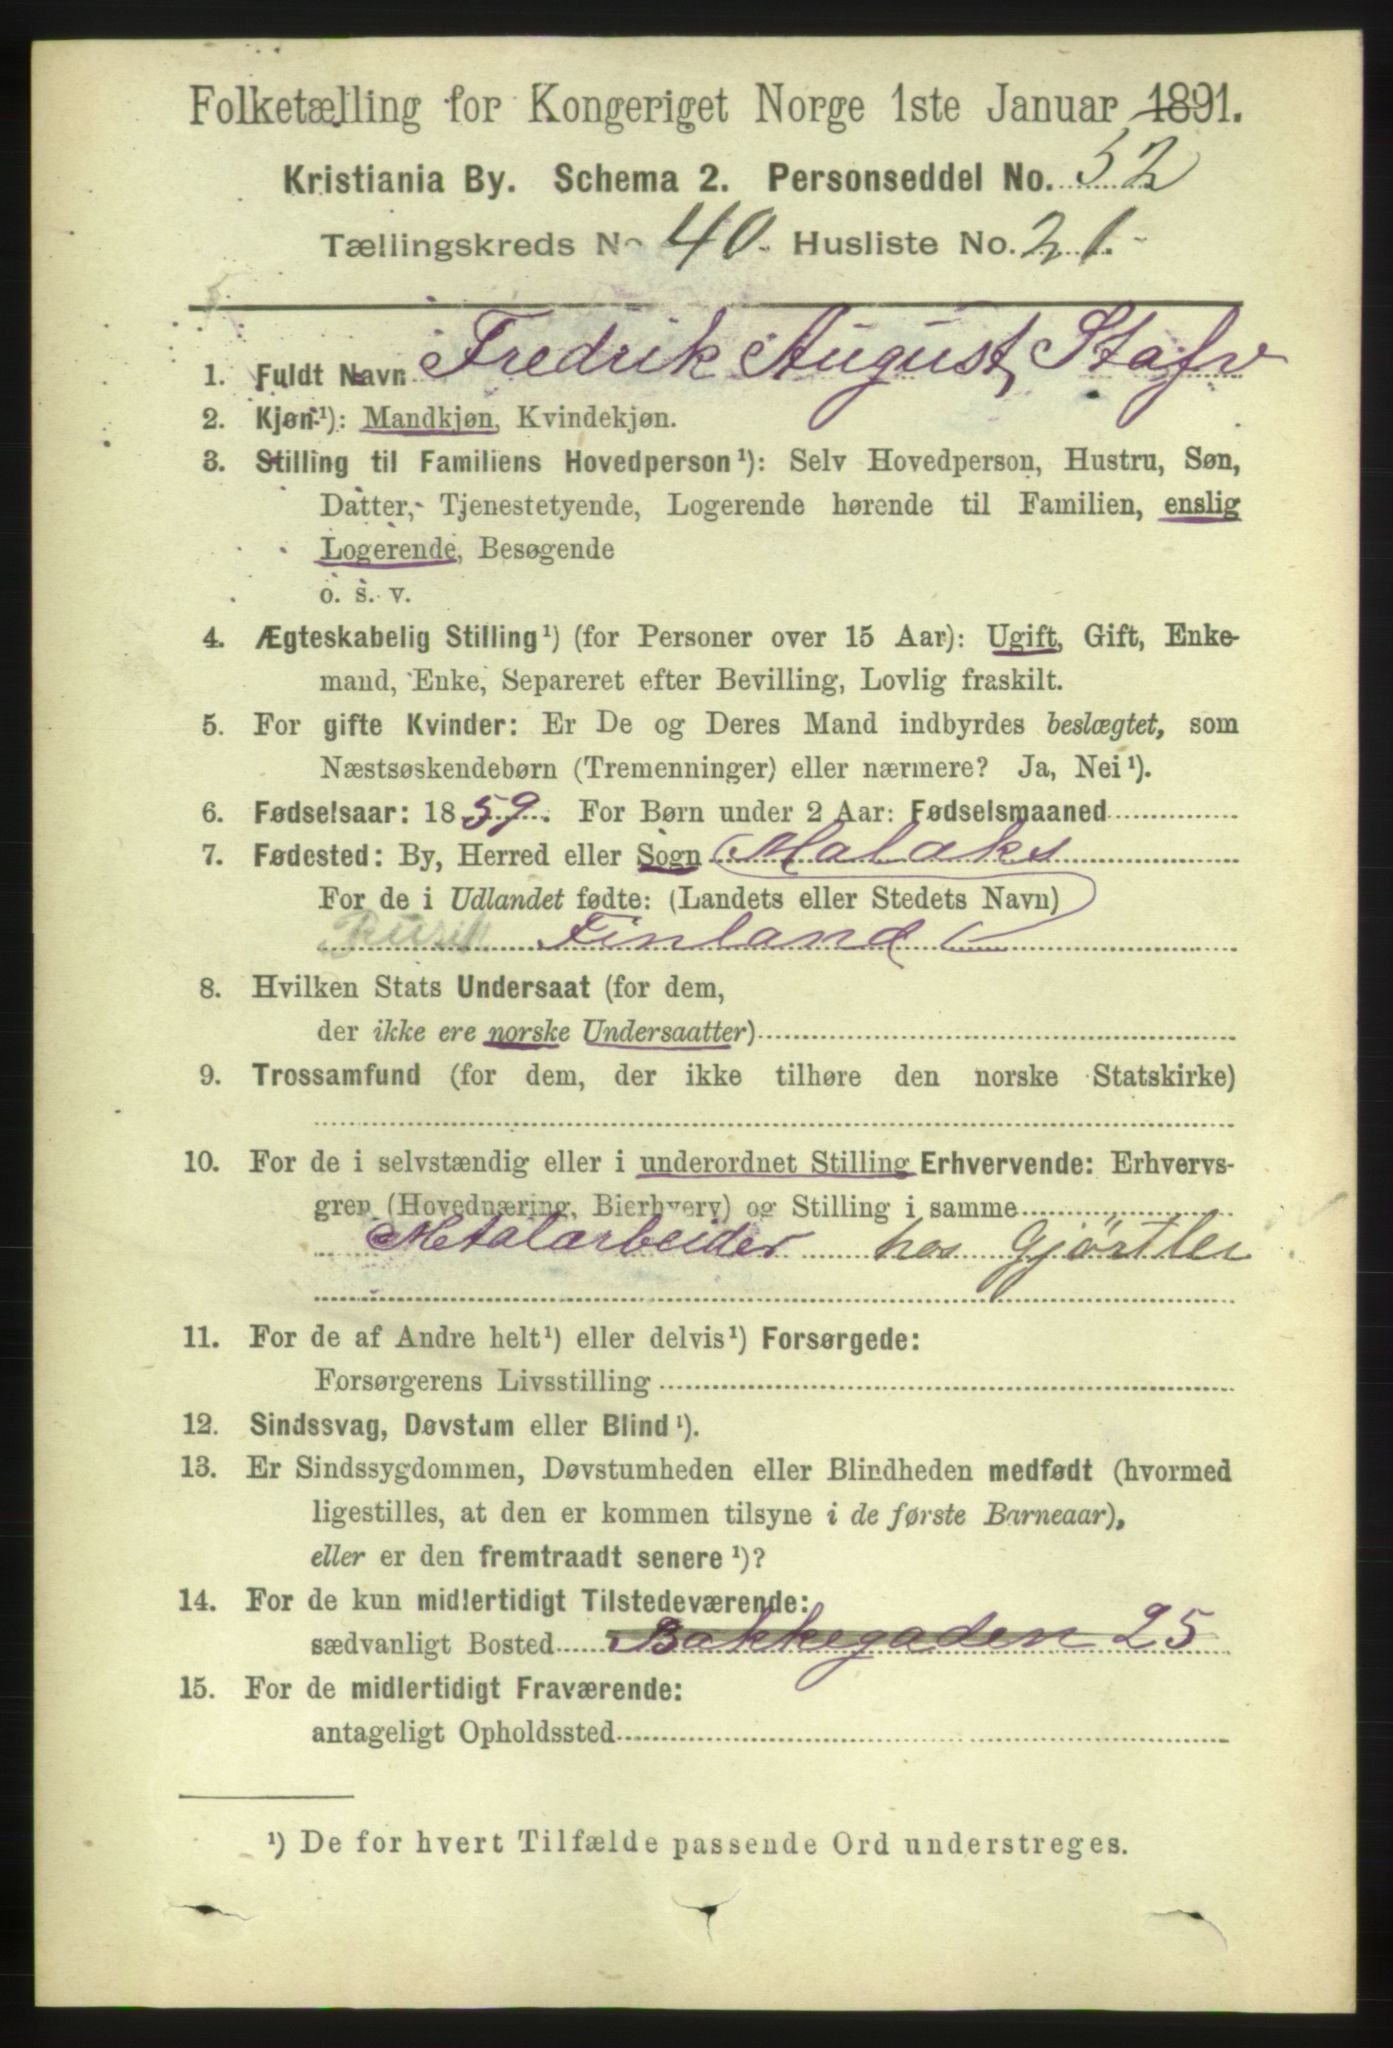 Folketælling for Kongeriget Norge 1ste Januar 1891.
Kristiania By. Schema 2. Personseddel No. 52
Tællingskreds No 40. Husliste No. 21.
1. Fuldt Navn Fredrik August Stafv
2. Kjøn¹): Mandkjøn, Kvindekjøn.
3. Stilling til Familiens Hovedperson¹): Selv Hovedperson, Hustru, Søn,
Datter, Tjenestetyende, Logerende hørende til Familien, enslig
Logerende, Besøgende
o. s. v.
4. Ægteskabelig Stilling¹) (for Personer over 15 Aar): Ugift, Gift, Enke-
mand, Enke, Separeret efter Bevilling, Lovlig fraskilt.
5. For gifte Kvinder: Er De og Deres Mand indbyrdes beslægtet, som
Næstsøskendebørn (Tremenninger) eller nærmere? Ja, Nei¹).
6. Fødselsaar: 1859. For Børn under 2 Aar: Fødselsmaaned
7. Fødested: By, Herred eller Sogn Malaks
For de i Udlandet fødte: (Landets eller Stedets Navn)
Finland
8. Hvilken Stats Undersaat (for dem,
der ikke ere norske Undersaatter)
9. Trossamfund (for dem, der ikke tilhøre den norske Statskirke)
10. For de i selvstændig eller i underordnet Stilling Erhvervende: Erhvervs-
gren (Hovednæring, Bierhverv) og Stilling i samme
Metalarbeider hos Gjørtler
11. For de af Andre helt¹) eller delvis¹) Forsørgede:
Forsørgerens Livsstilling
12. Sindssvag, Døvstum eller Blind¹).
13. Er Sindssygdommen, Døvstumheden eller Blindheden medfødt (hvormed
ligestilles, at den er kommen tilsyne i de første Barneaar),
eller er den fremtraadt senere¹)?
14. For de kun midlertidigt Tilstedeværende:
sædvanligt Bosted Bakkegaden 25
15. For de midlertidigt Fraværende:
antageligt Opholdssted
¹) De for hvert Tilfælde passende Ord understreges.